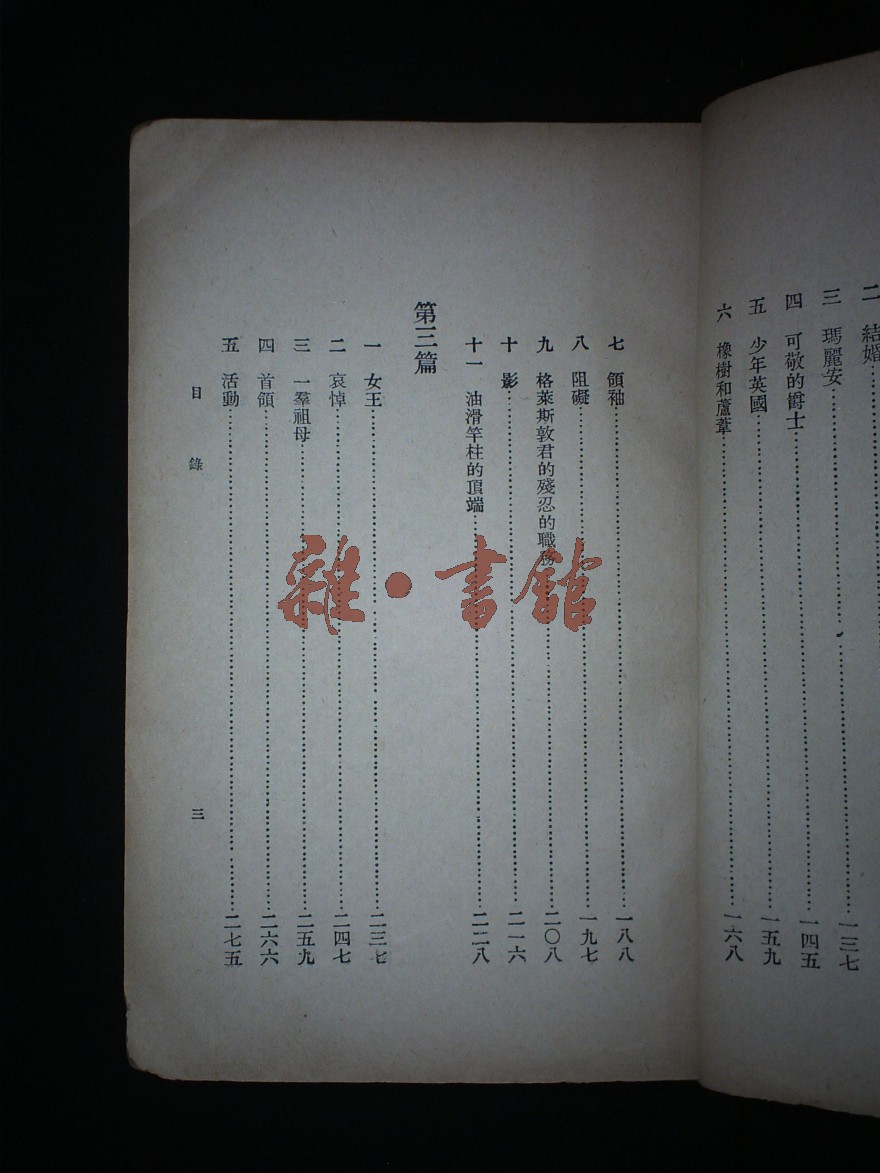 二 結婚
三 瑪麗安……一三七
四 可敬的爵士……一四五
五 少年英國……一五九
六 橡樹和蘆葦……一六八
七 領袖……一八八
八 阻礙……一九七
九 格萊斯敦君的殘忍的職務……二〇八
十 影……二一六
十一 油滑竿柱的頂端……二二八
第三篇
一 女王……二三七
二 哀悼……二四七
三 一羣祖母……二五九
四 首領……二六六
五 活動……二七五
目錄
三
雜·書館